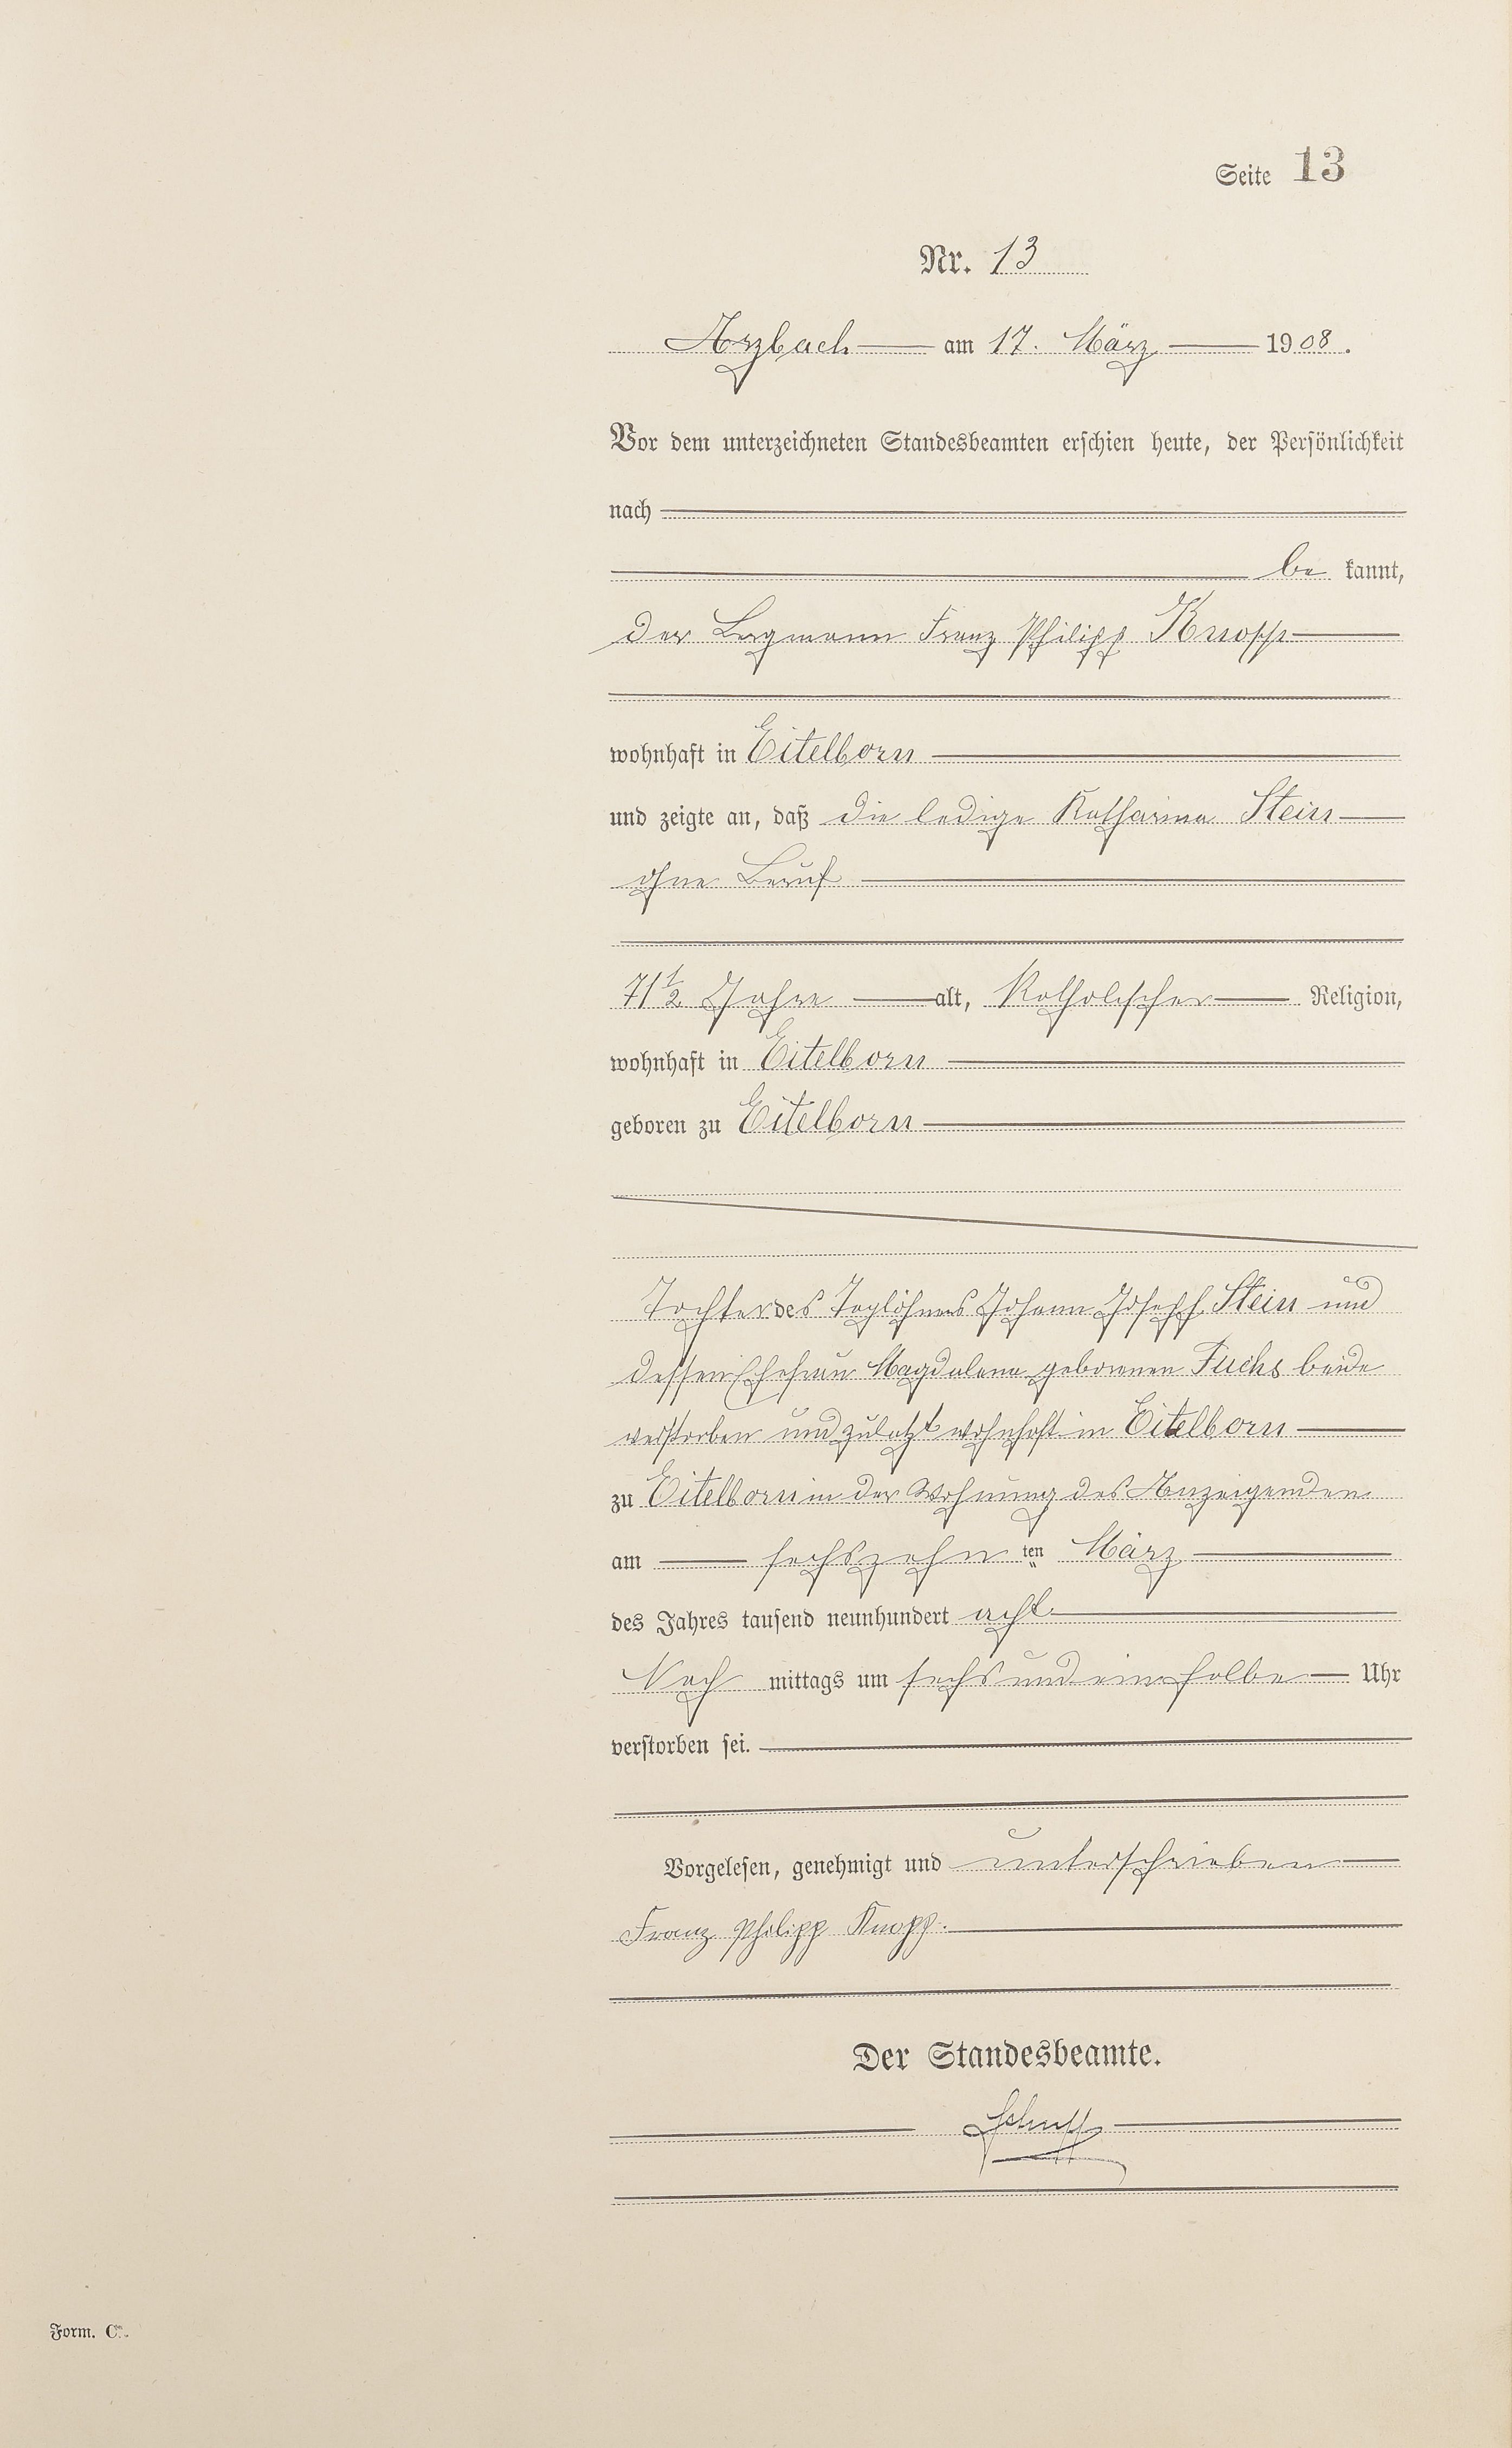 Seite 13
Nr. 13
Arzbach am 17. März 1908.
Vor dem unterzeichneten Standesbeamten erschien heute, der Persönlichkeit
nach
be kannt,
der Bergmann Franz Philipp Knopp
wohnhaft in Eitelborn
und zeigte an, daß die ledige Katharina Stein
ohne Beruf
71 1/2 Jahre alt, Katholischer Religion,
wohnhaft in Eitelborn
geboren zu Eitelborn
Tochter des Taglöhners Johann Joseph Stein und
dessen Ehefrau Magdalena gebornen Fuchs beide
verstorben und zuletzt wohnhaft in Eitelborn
zu Eitelborn in der Wohnung des Anzeigenden
am sechszehn ten März
des Jahres tausend neunhundert acht
Nach mittags um sechs und ein halbe Uhr
verstorben sei.
Vorgelesen, genehmigt und unterschrieben
Franz Philipp Knopp.
Der Standesbeamte.
Form. C.